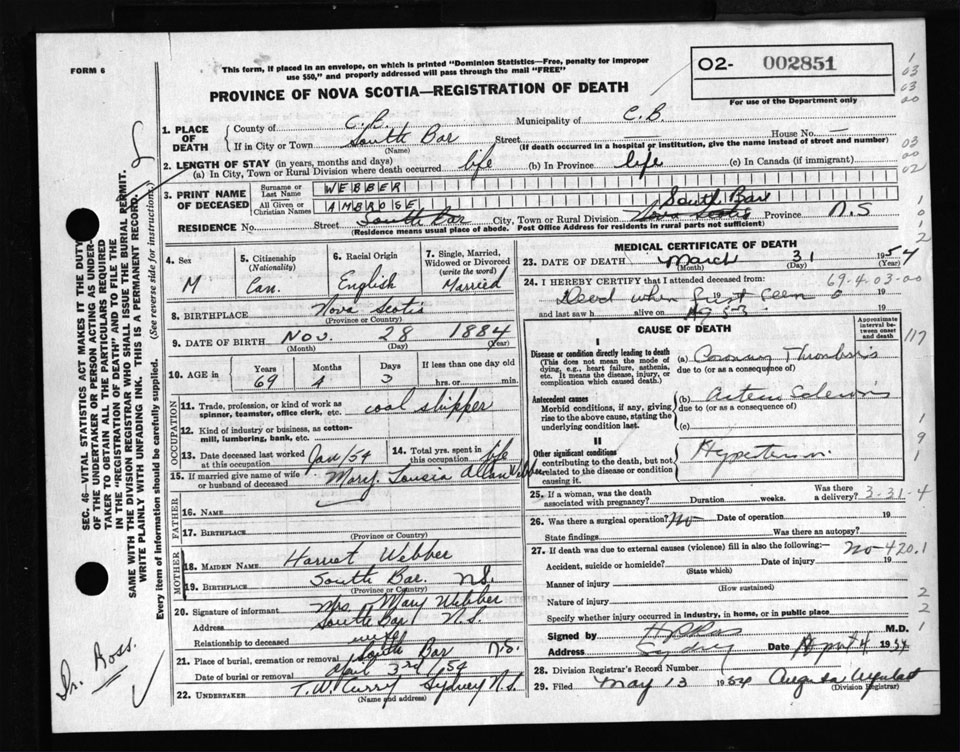 FORM 6
This form, if placed in an envelope, on which is printed "Dominion Statistics—Free, penalty for improper
use $50," and properly addressed will pass through the mail "FREE"
PROVINCE OF NOVA SCOTIA—REGISTRATION OF DEATH
02- 002851
For use of the Department only
SEC. 46—VITAL STATISTICS ACT MAKES IT THE DUTY
OF THE UNDERTAKER OR PERSON ACTING AS UNDER-
TAKER TO OBTAIN ALL THE PARTICULARS REQUIRED
IN THE "REGISTRATION OF DEATH" AND TO FILE THE
SAME WITH THE DIVISION REGISTRAR WHO SHALL ISSUE THE BURIAL PERMIT.
WRITE PLAINLY WITH UNFADING INK. THIS IS A PERMANENT RECORD.
Every item of information should be carefully supplied. (See reverse side for instructions.)
1. PLACE OF DEATH
County of C.B. Municipality of C.B
If in City or Town South Bar Street — House No. —
(Name) (If death occurred in a hospital or institution, give the name instead of street and number)
2. LENGTH OF STAY (in years, months and days)
(a) In City, Town or Rural Division where death occurred life (b) In Province life (c) In Canada (if immigrant)
3. PRINT NAME OF DECEASED
Surname or Last Name WEBBER
All Given or Christian Names AMBROSE
South Bar
RESIDENCE No. Street South Bar City, Town or Rural Division Nova Scotia Province N.S
(Residence means usual place of abode. Post Office Address for residents in rural parts not sufficient)
4. Sex
M
5. Citizenship (Nationality)
Can.
6. Racial Origin
English
7. Single, Married, Widowed or Divorced (write the word)
Married
8. BIRTHPLACE Nova Scotia
(Province or Country)
9. DATE OF BIRTH Nov. 28 1884
(Month) (Day) (Year)
10. AGE in Years Months Days If less than one day old
69 4 3 hrs. or min.
OCCUPATION
11. Trade, profession, or kind of work as spinner, teamster, office clerk, etc. coal shipper
12. Kind of industry or business, as cotton-mill, lumbering, bank, etc.
13. Date deceased last worked at this occupation Jan/54
14. Total yrs. spent in this occupation life
15. If married give name of wife or husband of deceased Mary Lousia Allan Webber
FATHER
16. NAME
17. BIRTHPLACE
(Province or Country)
MOTHER
18. MAIDEN NAME Harriet Webber
19. BIRTHPLACE South Bar. N.S.
(Province or Country)
20. Signature of informant Mrs. Mary Webber
Address South Bar N.S.
Relationship to deceased wife
21. Place of burial, cremation or removal South Bar N.S.
Date of burial or removal April 3rd/54
22. UNDERTAKER T.W. Curry Sydney N.S.
(Name and address)
MEDICAL CERTIFICATE OF DEATH
23. DATE OF DEATH March 31 1954
(Month) (Day) (Year)
69-4-03-00
24. I HEREBY CERTIFY that I attended deceased from: 19
Dead when first seen
and last saw h alive on 19
CAUSE OF DEATH
Approximate interval between onset and death
I
Disease or condition directly leading to death
(This does not mean the mode of dying, e.g., heart failure, asthenia, etc. It means the disease, injury, or complication which caused death.)
(a) Coronary Thrombosis
due to (or as a consequence of)
Antecedent causes
Morbid conditions, if any, giving rise to the above cause, stating the underlying condition last.
(b) Arterio Sclerosis
due to (or as a consequence of)
(c)
II
Other significant conditions
contributing to the death, but not related to the disease or condition causing it.
Hypertension
25. If a woman, was the death associated with pregnancy? Duration weeks. Was there a delivery? 3-31-4
26. Was there a surgical operation? No Date of operation 19
State findings Was there an autopsy?
27. If death was due to external causes (violence) fill in also the following:— No-420.1
Accident, suicide or homicide? Date of injury 19
(State which)
Manner of injury
(How sustained)
Nature of injury
Specify whether injury occurred in industry, in home, or in public place
Signed by M.D.
Address Sydney Date 4 1954
28. Division Registrar's Record Number
29. Filed May 13 1954 Augusta
(Division Registrar)
Dr. Ross.